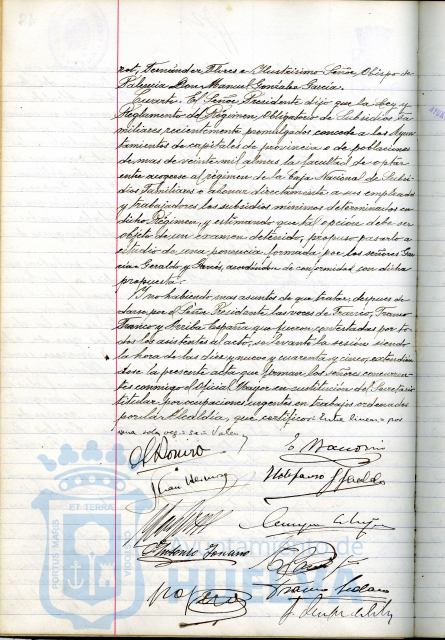 rot, Fernández Flores e Ilustrísimo Señor Obispo de
Palencia Don Manuel González García.
Cuarto. El Señor Presidente dijo que la Ley y
Reglamento del Régimen Obligatorio de Subsidios Fa-
miliares recientemente promulgados concede a los Ayun-
tamientos de capitales de provincia o de poblaciones
de mas de veinte mil almas la facultad de optar
entre acogerse al régimen de la Caja Nacional de Subsi-
dios Familiares o abonar directamente a sus empleados
y trabajadores los subsidios mínimos determinados en
dicho Régimen, y estimando que tal opción debe ser
objeto de un examen detenido, propuso pasarlo a
estudio de una ponencia formada por los señores Gar-
cia Geraldo y Garcés, acordandose de conformidad con dicha
propuesta.
Y no habiendo mas asuntos de que tratar, despues de
darse por el Señor Presidente las voces de Franco, Franco
Franco y Arriba España que fueron contestadas por to-
dos los asistentes al acto, se levanta la sesión siendo
la hora de las diez y nueve y cuarenta y cinco, extendien-
dose la presente acta que firman los señores concurren-
tes conmigo el Oficial Mayor en sustitución del Secretario
titular por ocupaciones urgentes en trabajos ordenados
por la Alcaldía, que certifico. Entre lineas = por
una sola vez = se = Valen
Antonio Toscano
PORTUS MARIS
ET TERRÆ
CUSTODIA
Ayuntamiento de
HUELVA